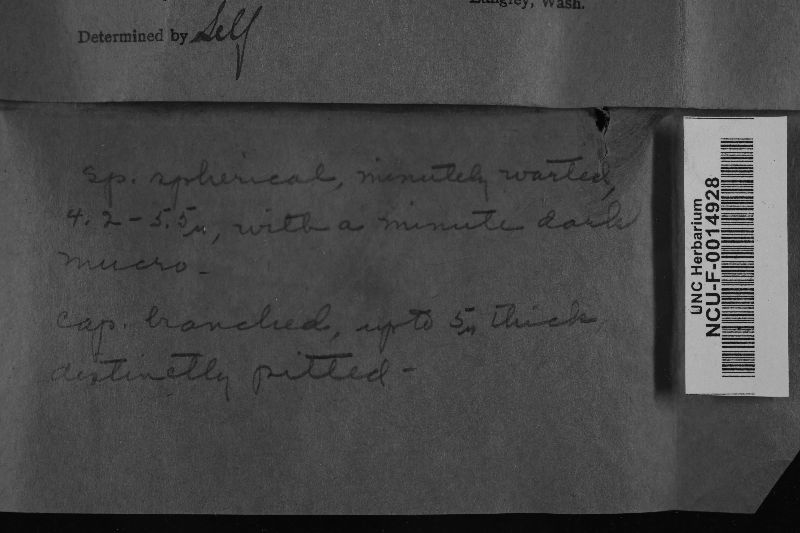 Langley, Wash.
Determined by Self
Sp. spherical, minutely warted,
4.2-5.5µ, with a minute dark
mucro-
Cap. branched, up to 5µ thick
distinctly pitted-
UNC Herbarium
NCU-F-0014928